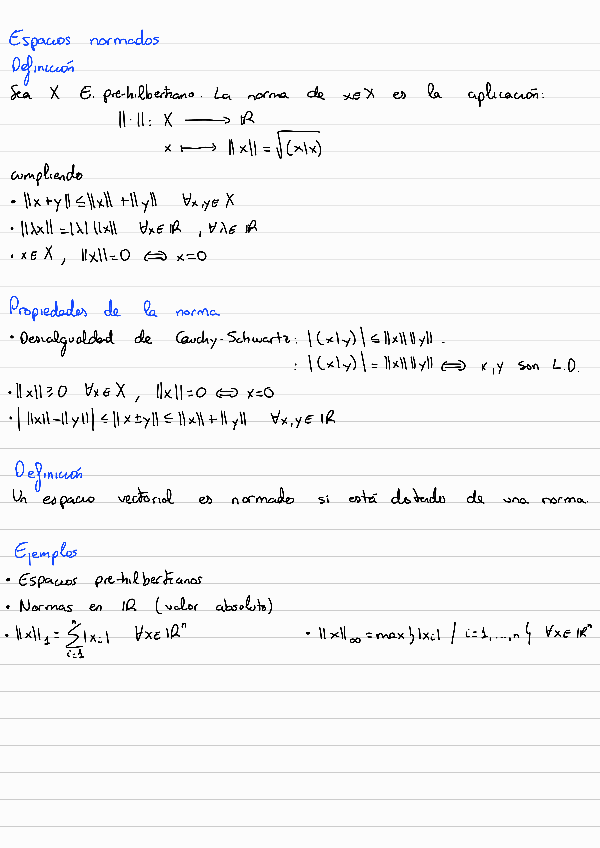 Espacios normados
Definición
Sea X E. pre-hilbertiano. La norma de x∈X es la aplicación:
||·||: X ⟶ ℝ
x ⟼ ||x|| = √(x|x)
cumpliendo
• ||x+y|| ≤ ||x|| + ||y|| ∀x,y∈X
• ||λx|| = |λ| ||x|| ∀x∈ℝ, ∀λ∈ℝ
• x∈X, ||x||=0 ⟺ x=0
Propiedades de la norma
• Desigualdad de Cauchy-Schwartz: |(x|y)| ≤ ||x|| ||y||.
: |(x|y)| = ||x|| ||y|| ⟺ x,y son L.D.
• ||x|| ≥ 0 ∀x∈X, ||x||=0 ⟺ x=0
• | ||x|| - ||y|| | ≤ ||x±y|| ≤ ||x|| + ||y|| ∀x,y∈ℝ
Definición
Un espacio vectorial es normado si está dotado de una norma.
Ejemplos
• Espacios pre-hilbertianos
• Normas en ℝ (valor absoluto)
• ||x||₁ = ∑ⁿᵢ₌₁ |xᵢ| ∀x∈ℝⁿ • ||x||∞ = max{|xᵢ| / i=1,...,n} ∀x∈ℝⁿ